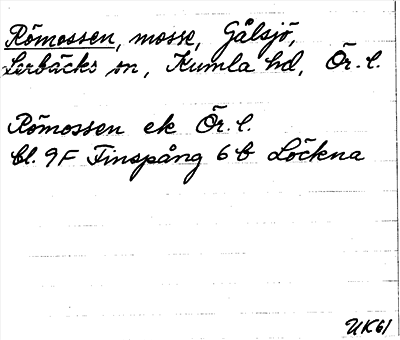 Römossen, mosse, Gålsjö,
Lerbäcks sn, Kumla hd, Ör. l.
Römossen ek Ör. l.
bl. 9F Finspång 6 b Löckna
UK61